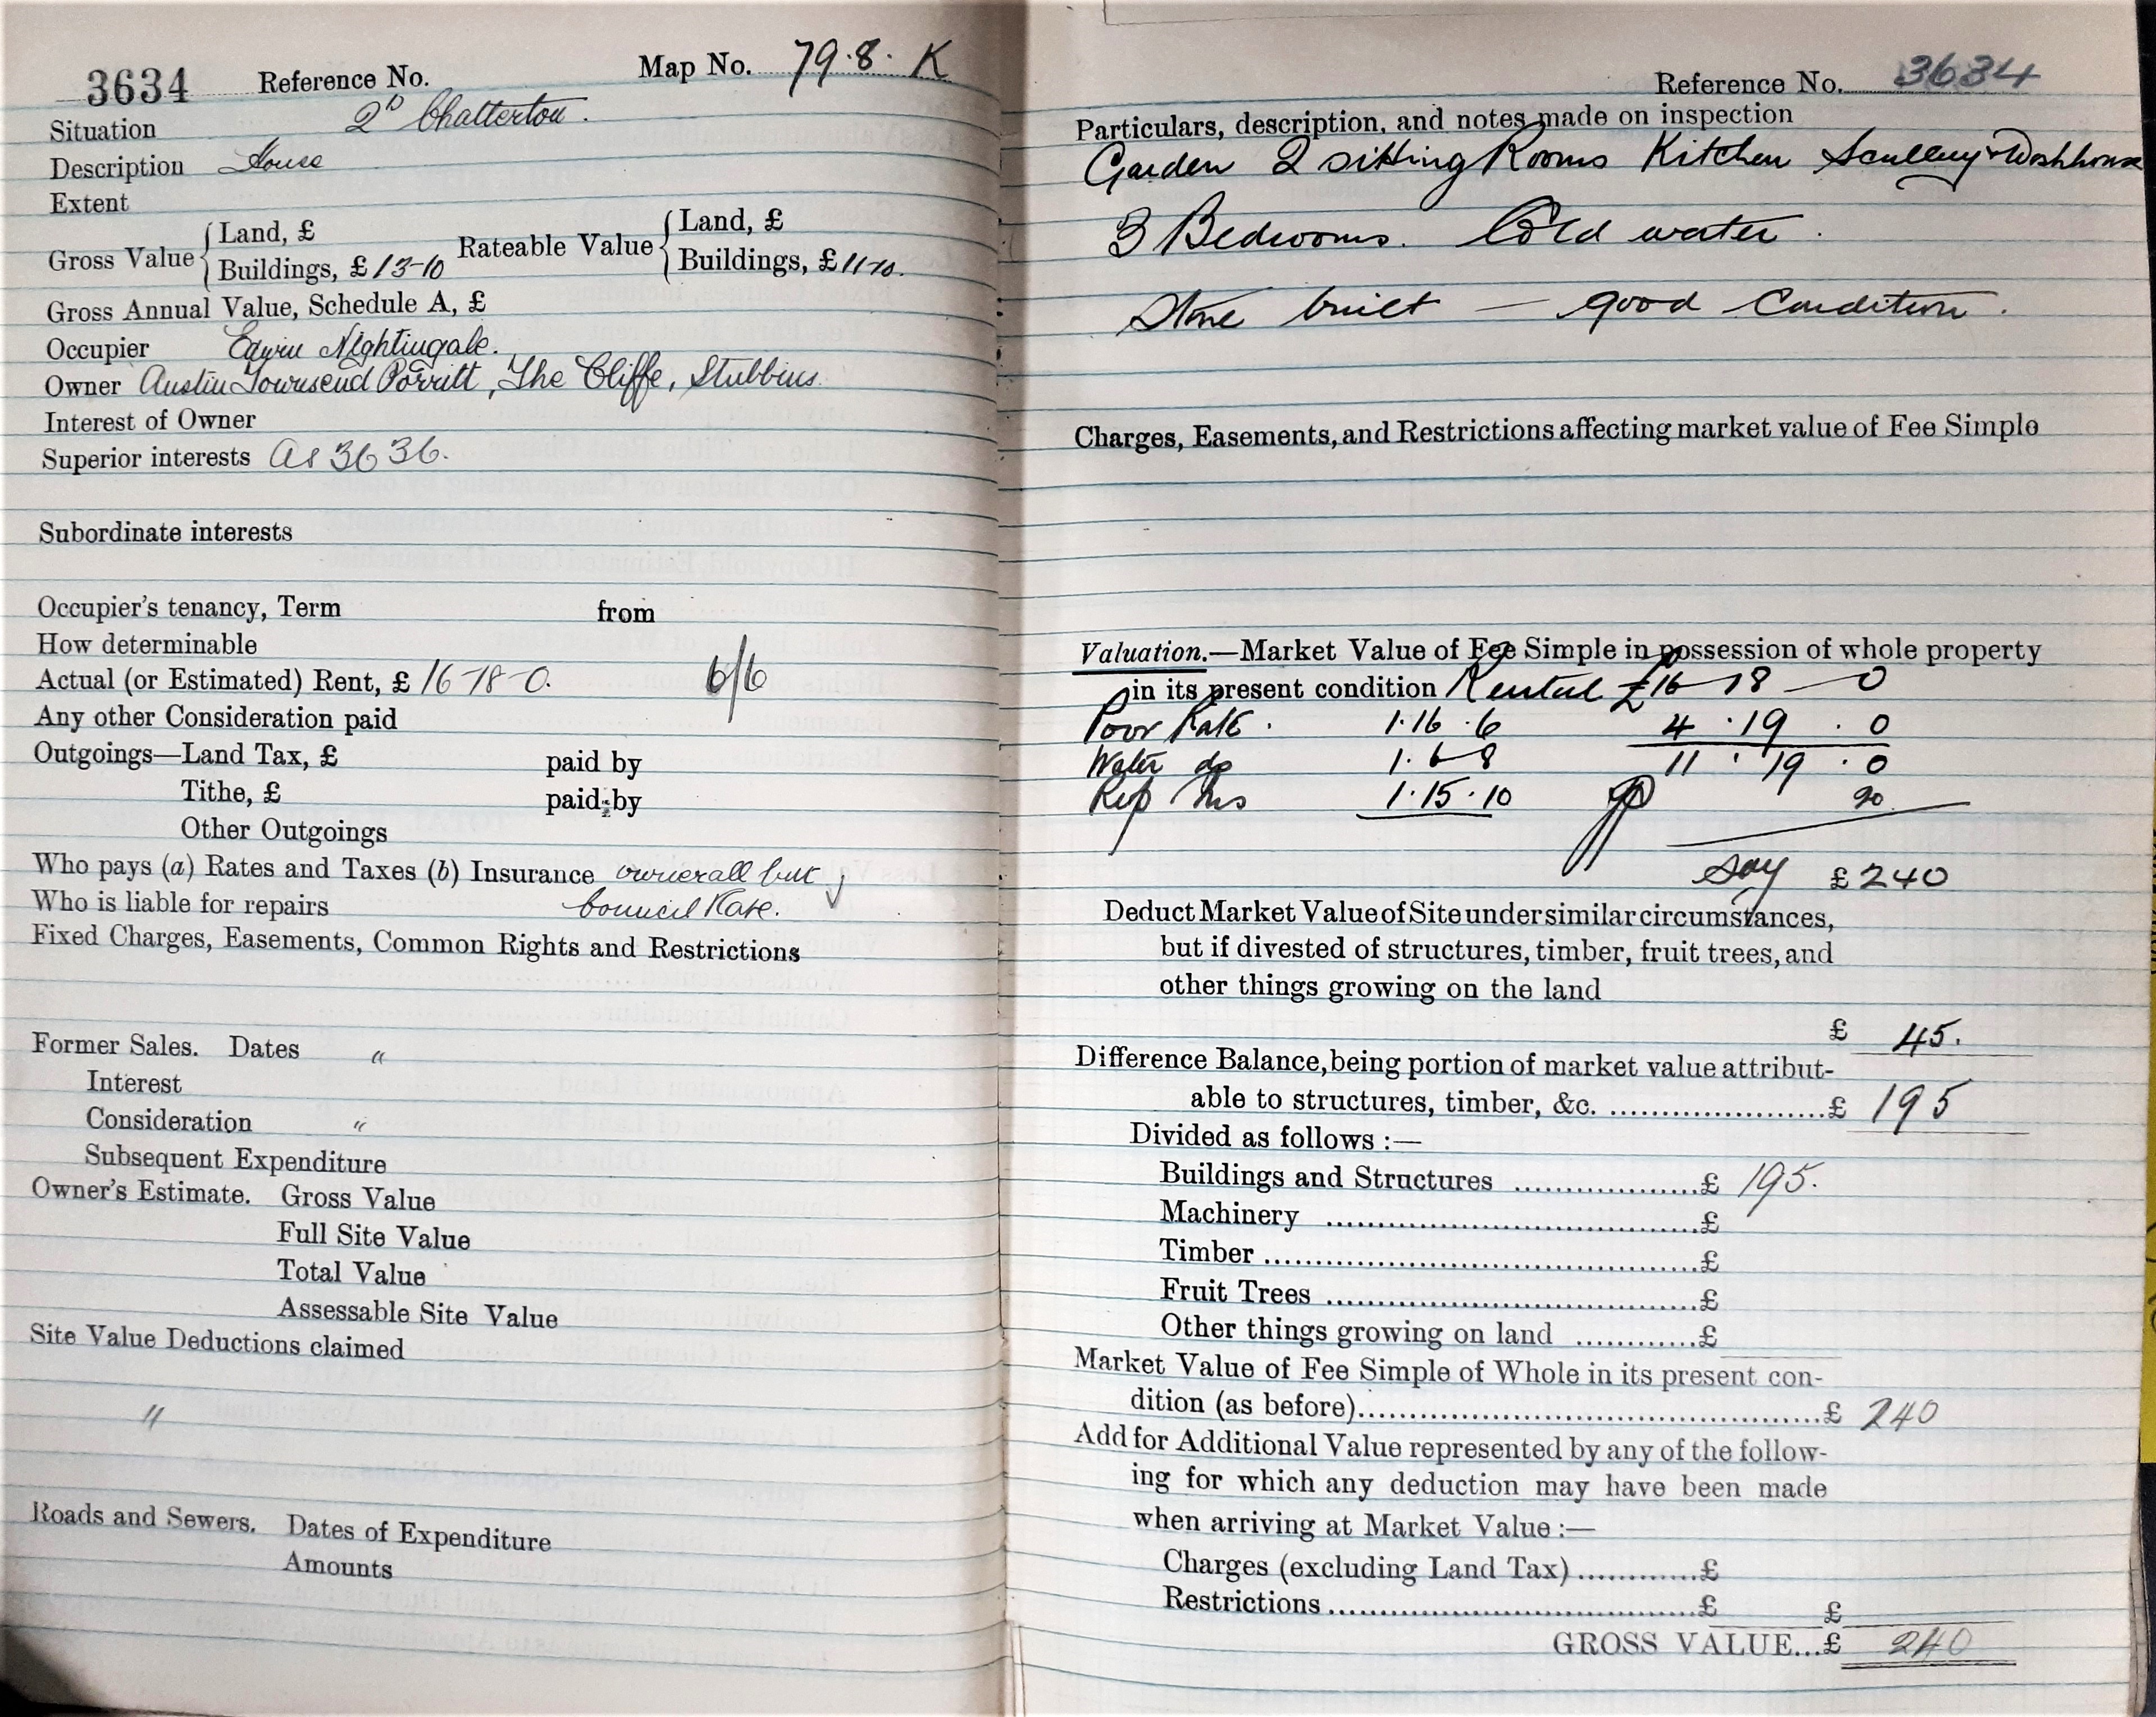 3634 Reference No. Map No. 79.8. K
Situation 2D Chatterton.
Description House
Extent
Gross Value { Land, £ Rateable Value { Land, £
Buildings, £ 13-10 Buildings, £ 11-10.
Gross Annual Value, Schedule A, £
Occupier Edwin Nightingale.
Owner Austin Townsend Porritt, The Cliffe, Stubbins.
Interest of Owner
Superior interests as 3636.
Subordinate interests
Occupier's tenancy, Term from
How determinable
Actual (or Estimated) Rent, £ 16-18-0. 6/6
Any other Consideration paid
Outgoings—Land Tax, £ paid by
Tithe, £ paid by
Other Outgoings
Who pays (a) Rates and Taxes (b) Insurance owner all but
Who is liable for repairs Council Rate.
Fixed Charges, Easements, Common Rights and Restrictions
Former Sales. Dates "
Interest
Consideration "
Subsequent Expenditure
Owner's Estimate. Gross Value
Full Site Value
Total Value
Assessable Site Value
Site Value Deductions claimed
"
Roads and Sewers. Dates of Expenditure
Amounts
Reference No. 3634
Particulars, description, and notes made on inspection
Garden 2 sitting Rooms Kitchen Scullery & Washhouse
3 Bedrooms. Cold water.
Stone built — good Condition.
Charges, Easements, and Restrictions affecting market value of Fee Simple
Valuation.—Market Value of Fee Simple in possession of whole property
in its present condition Rental £16-18-0
Poor Rate. 1.16.6 4.19.0
Water do 1.6-8 11.19.0
Rep Ins 1.15.10 20
say £240
Deduct Market Value of Site under similar circumstances,
but if divested of structures, timber, fruit trees, and
other things growing on the land
£ 45.
Difference Balance, being portion of market value attribut-
able to structures, timber, &c. ......£ 195
Divided as follows :—
Buildings and Structures ......£ 195.
Machinery ......£
Timber ......£
Fruit Trees ......£
Other things growing on land ......£
Market Value of Fee Simple of Whole in its present con-
dition (as before)......£ 240
Add for Additional Value represented by any of the follow-
ing for which any deduction may have been made
when arriving at Market Value :—
Charges (excluding Land Tax)......£
Restrictions......£ £
GROSS VALUE...£ 240